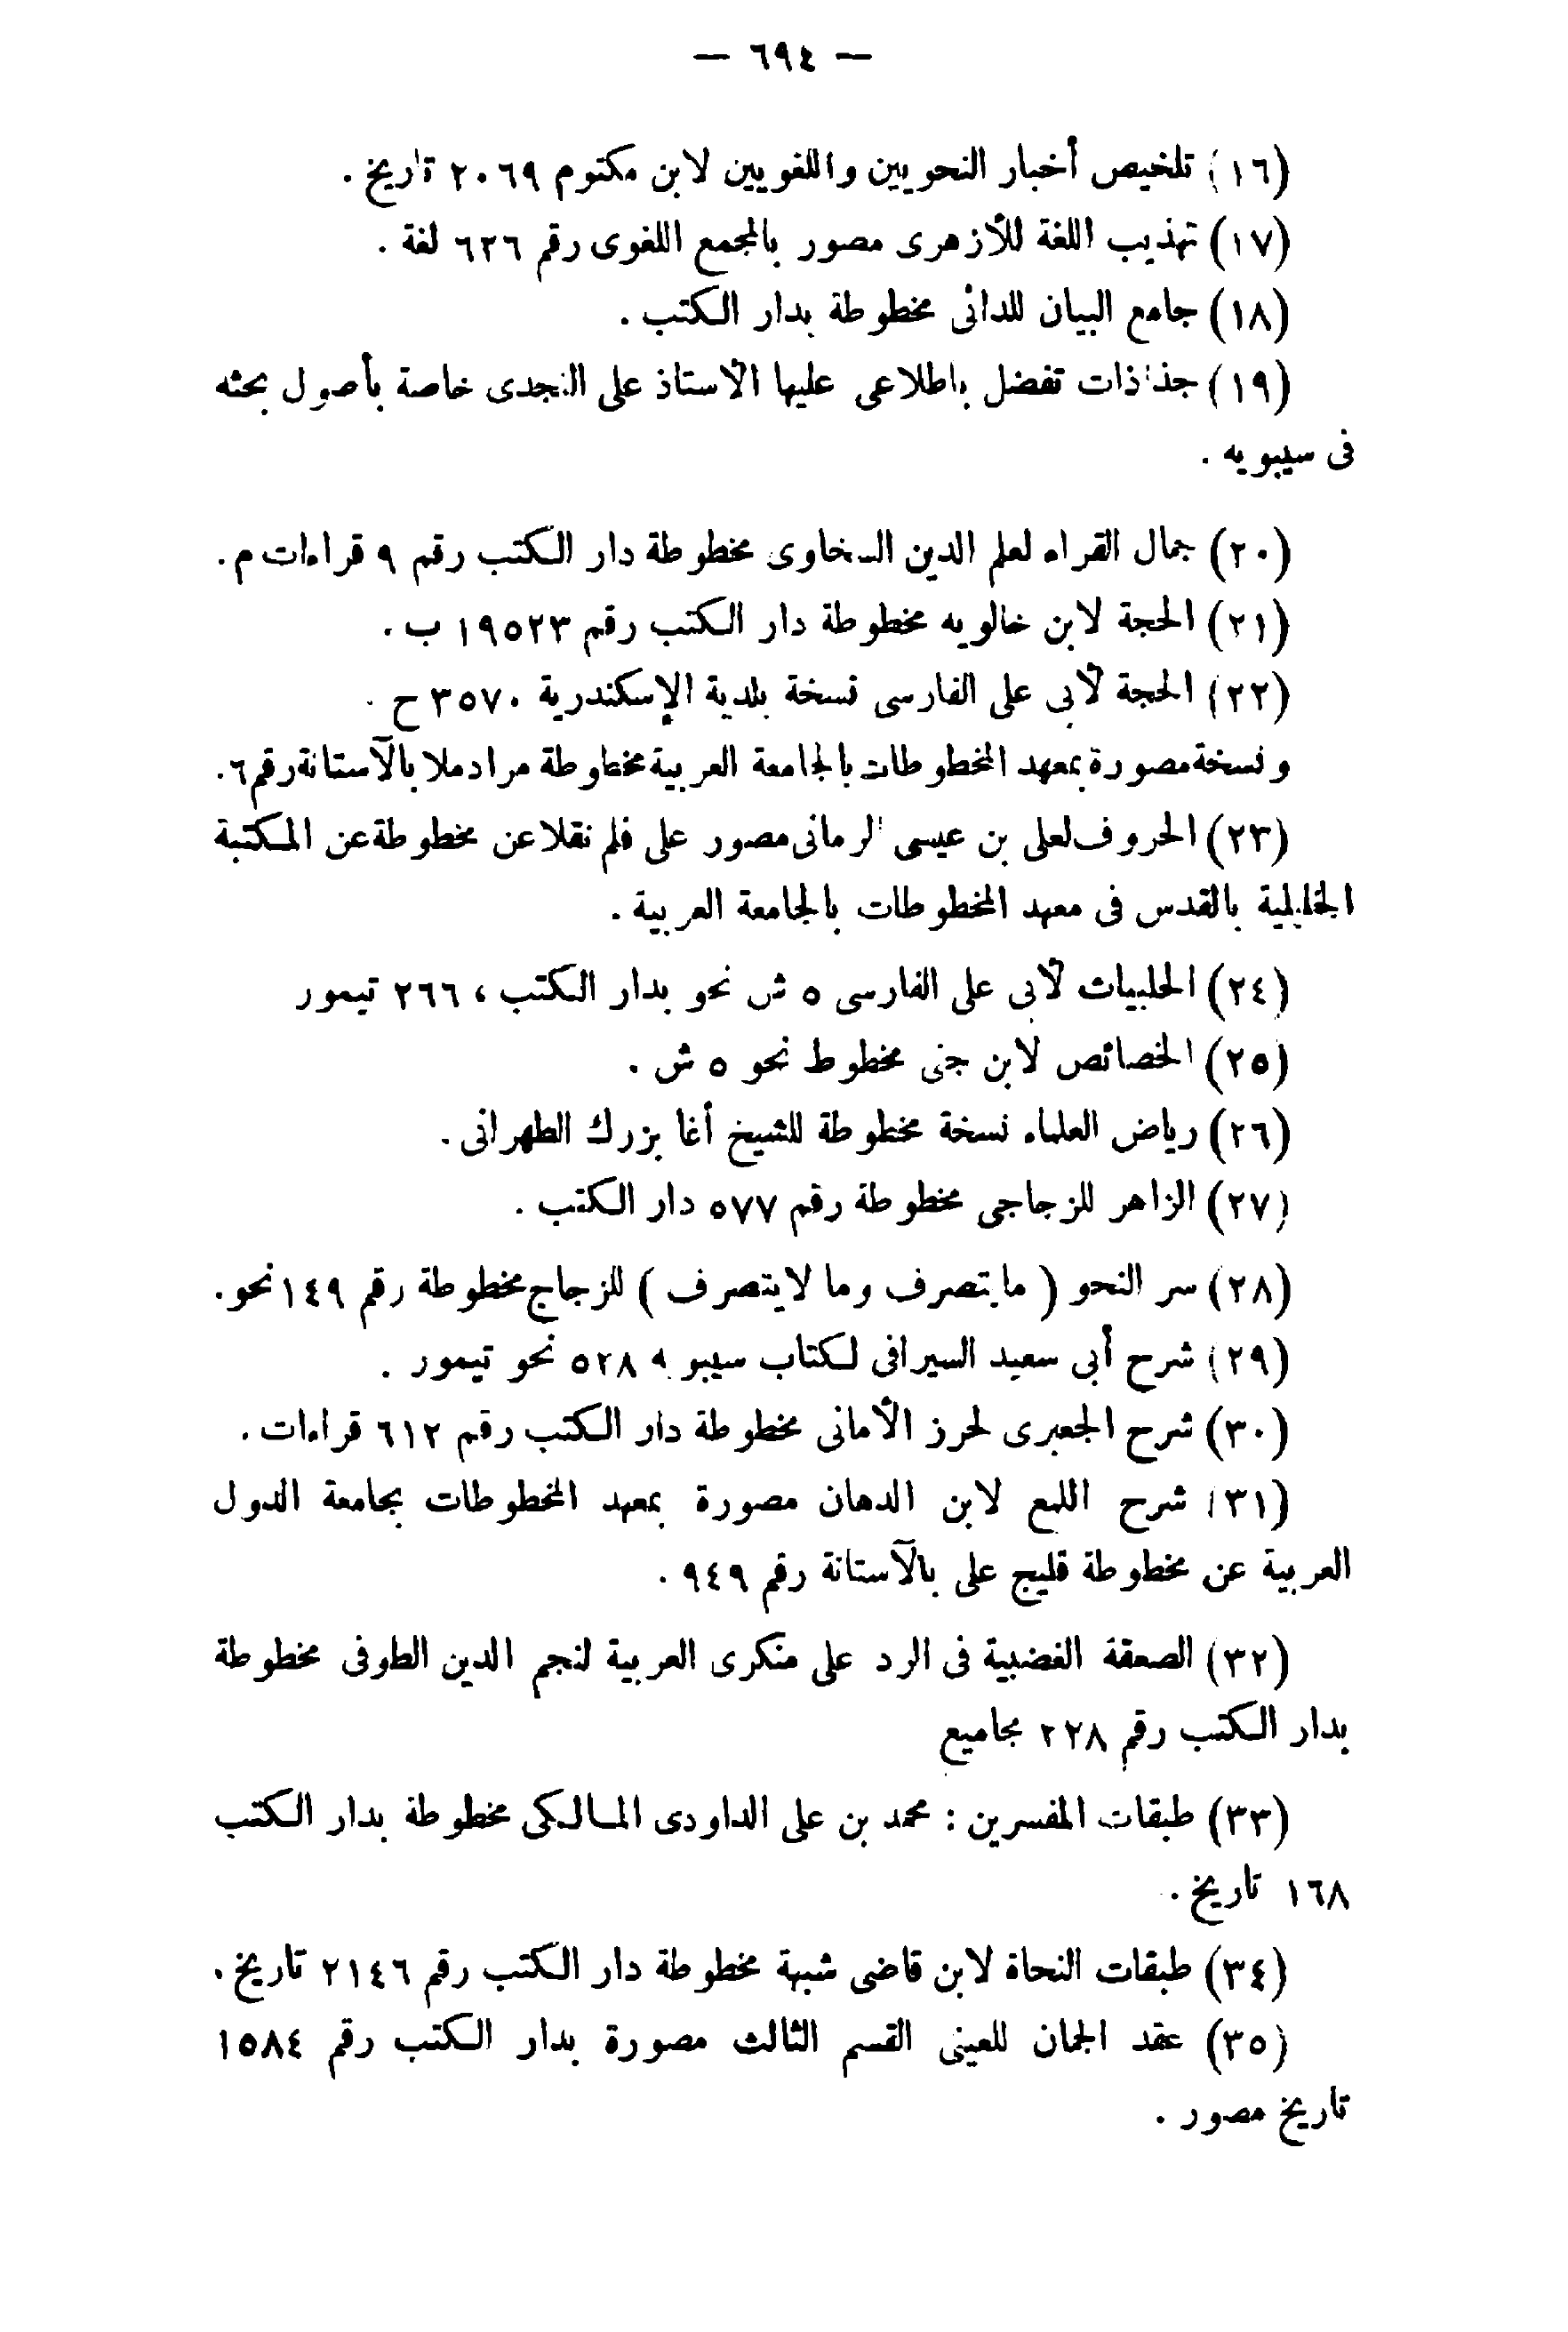 — ٦٩٤ —
(١٦) تلخيص أخبار النحويين واللغويين لابن مكتوم ٢٠٦٩ تاريخ .
(١٧) تهذيب اللغة للأزهرى مصور بالمجمع اللغوى رقم ٦٢٦ لغة .
(١٨) جامع البيان للدانى مخطوطة بدار الكتب .
(١٩) جذاذات تفضل باطلاعى عليها الأستاذ على النجدى خاصة بأصول بحثه
فى سيبويه .
(٢٠) جمال القراء لعلم الدين السخاوى مخطوطة دار الكتب رقم ٩ قراءات م .
(٢١) الحجة لابن خالويه مخطوطة دار الكتب رقم ١٩٥٢٣ ب .
(٢٢) الحجة لأبى على الفارسى نسخة بلدية الإسكندرية ٣٥٧٠ ح .
ونسخة مصورة بمعهد المخطوطات بالجامعة العربية مخطوطة مراد ملا بالآستانة رقم ٦ .
(٢٣) الحروف لعلى بن عيسى الرمانى مصور على فلم نقلا عن مخطوطة عن المكتبة
الخليلية بالقدس فى معهد المخطوطات بالجامعة العربية .
(٢٤) الحلبيات لأبى على الفارسى ٥ ش نحو بدار الكتب ، ٢٦٦ تيمور
(٢٥) الخصائص لابن جنى مخطوط نحو ٥ ش .
(٢٦) رياض العلماء نسخة مخطوطة للشيخ أغا بزرك الطهرانى .
(٢٧) الزاهر للزجاجى مخطوطة رقم ٥٧٧ دار الكتب .
(٢٨) سر النحو ( ما يتصرف وما لا يتصرف ) للزجاج مخطوطة رقم ١٤٩ نحو .
(٢٩) شرح أبى سعيد السيرافى لكتاب سيبويه ٥٢٨ نحو تيمور .
(٣٠) شرح الجعبرى لحرز الأمانى مخطوطة دار الكتب رقم ٦١٢ قراءات .
(٣١) شرح اللمع لابن الدهان مصورة بمعهد المخطوطات بجامعة الدول
العربية عن مخطوطة قليج على بالآستانة رقم ٩٤٩ .
(٣٢) الصعقة الغضبية فى الرد على منكرى العربية لنجم الدين الطوفى مخطوطة
بدار الكتب رقم ٢٢٨ مجاميع
(٣٣) طبقات المفسرين : محمد بن على الداودى المالكى مخطوطة بدار الكتب
١٦٨ تاريخ .
(٣٤) طبقات النحاة لابن قاضى شهبة مخطوطة دار الكتب رقم ٢١٤٦ تاريخ .
(٣٥) عقد الجمان للعينى القسم الثالث مصورة بدار الكتب رقم ١٥٨٤
تاريخ مصور .